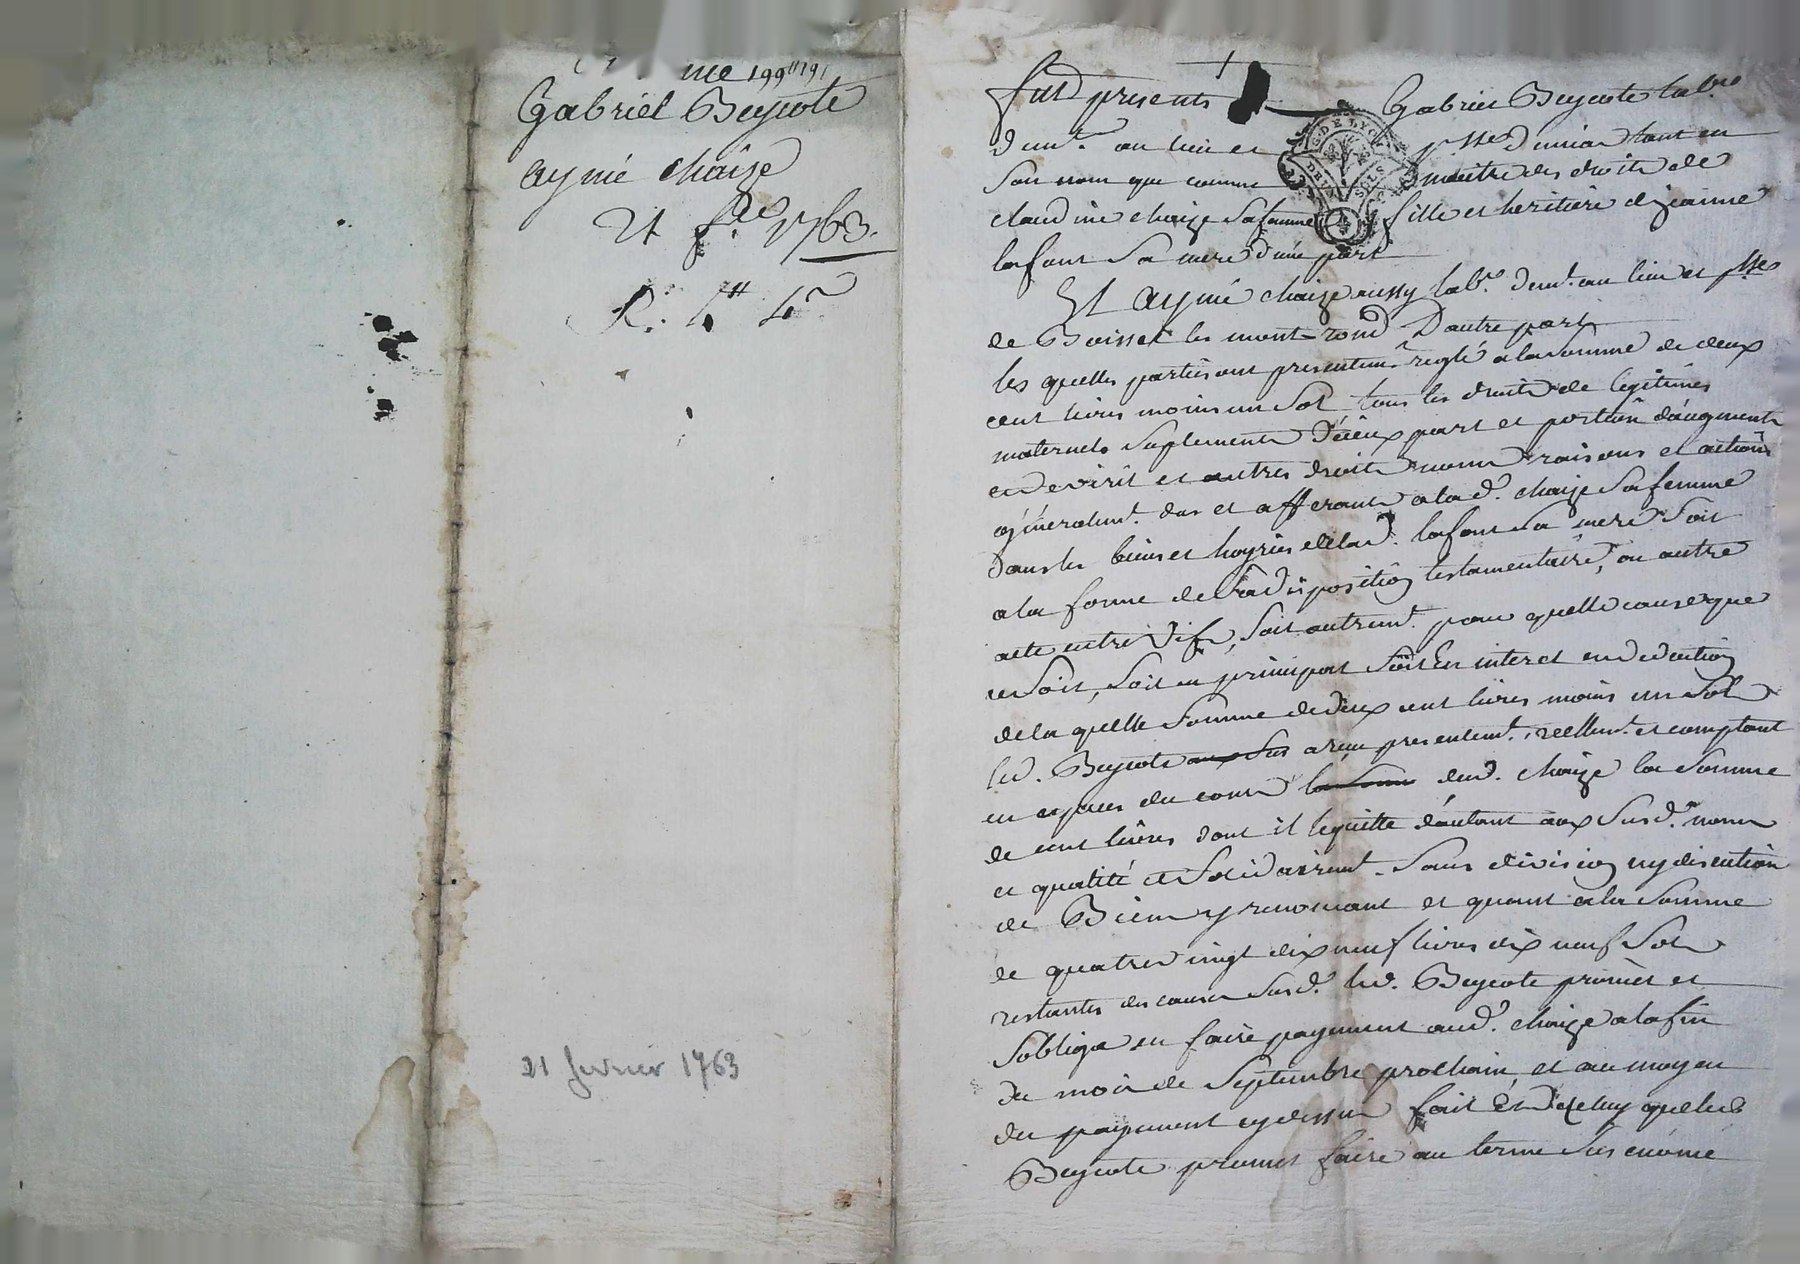 me 199" 19
Gabriel Beycote
aymé chaize
21 f.er 1763.
R. 1" 4
21 fevrier 1763
fut presents Gabriel Beycote lab.r
G. DE LYON
DEUX SOLS
dem.t au lieu et p.sse tant en
son nom que comme maitre des droits de
claudine chaize sa femme fille et heritiere de jeanne
lafont sa mere d'une part
Et aymé chaize aussy lab.r dem.t au lieu et p.sse
de Boisset les mont-rond D'autre part
les quelles parties ont presentem.t reglé a la somme de deux
cent livres moins un sol tous les droits de legitimes
maternels suplements d'iceux part et portion d'augments
et autres droits noms raisons et actions
generalem.t dus et afferants a lad. chaize sa femme
dans les biens et hoyries de lad. lafont sa mere soit
a la forme de sa disposition testamentaire, ou autre
acte entre vifs, soit autrem.t pour quelle cause que
ce soit, soit en principal soit en interet en deduction
de la quelle somme de deux cent livres moins un sol
led. Beycote a reçu presentem.t reellem.t et comptant
en especes du cours dud. chaize la somme
de cent livres dont il le quitte d'autant aux susd. noms
et qualité et solidairem.t sans division ny discution
de Biens y renonçant et quant a la somme
de quatre vingt dix neuf livres dix neuf sols
restantes des causes susd. led. Beycote promet et
s'oblige en faire payement aud. chaize a la fin
du mois de septembre prochain, et au moyen
du payement cy dessus fait et de celuy que led.
Beycote promet faire au terme sus enoncé